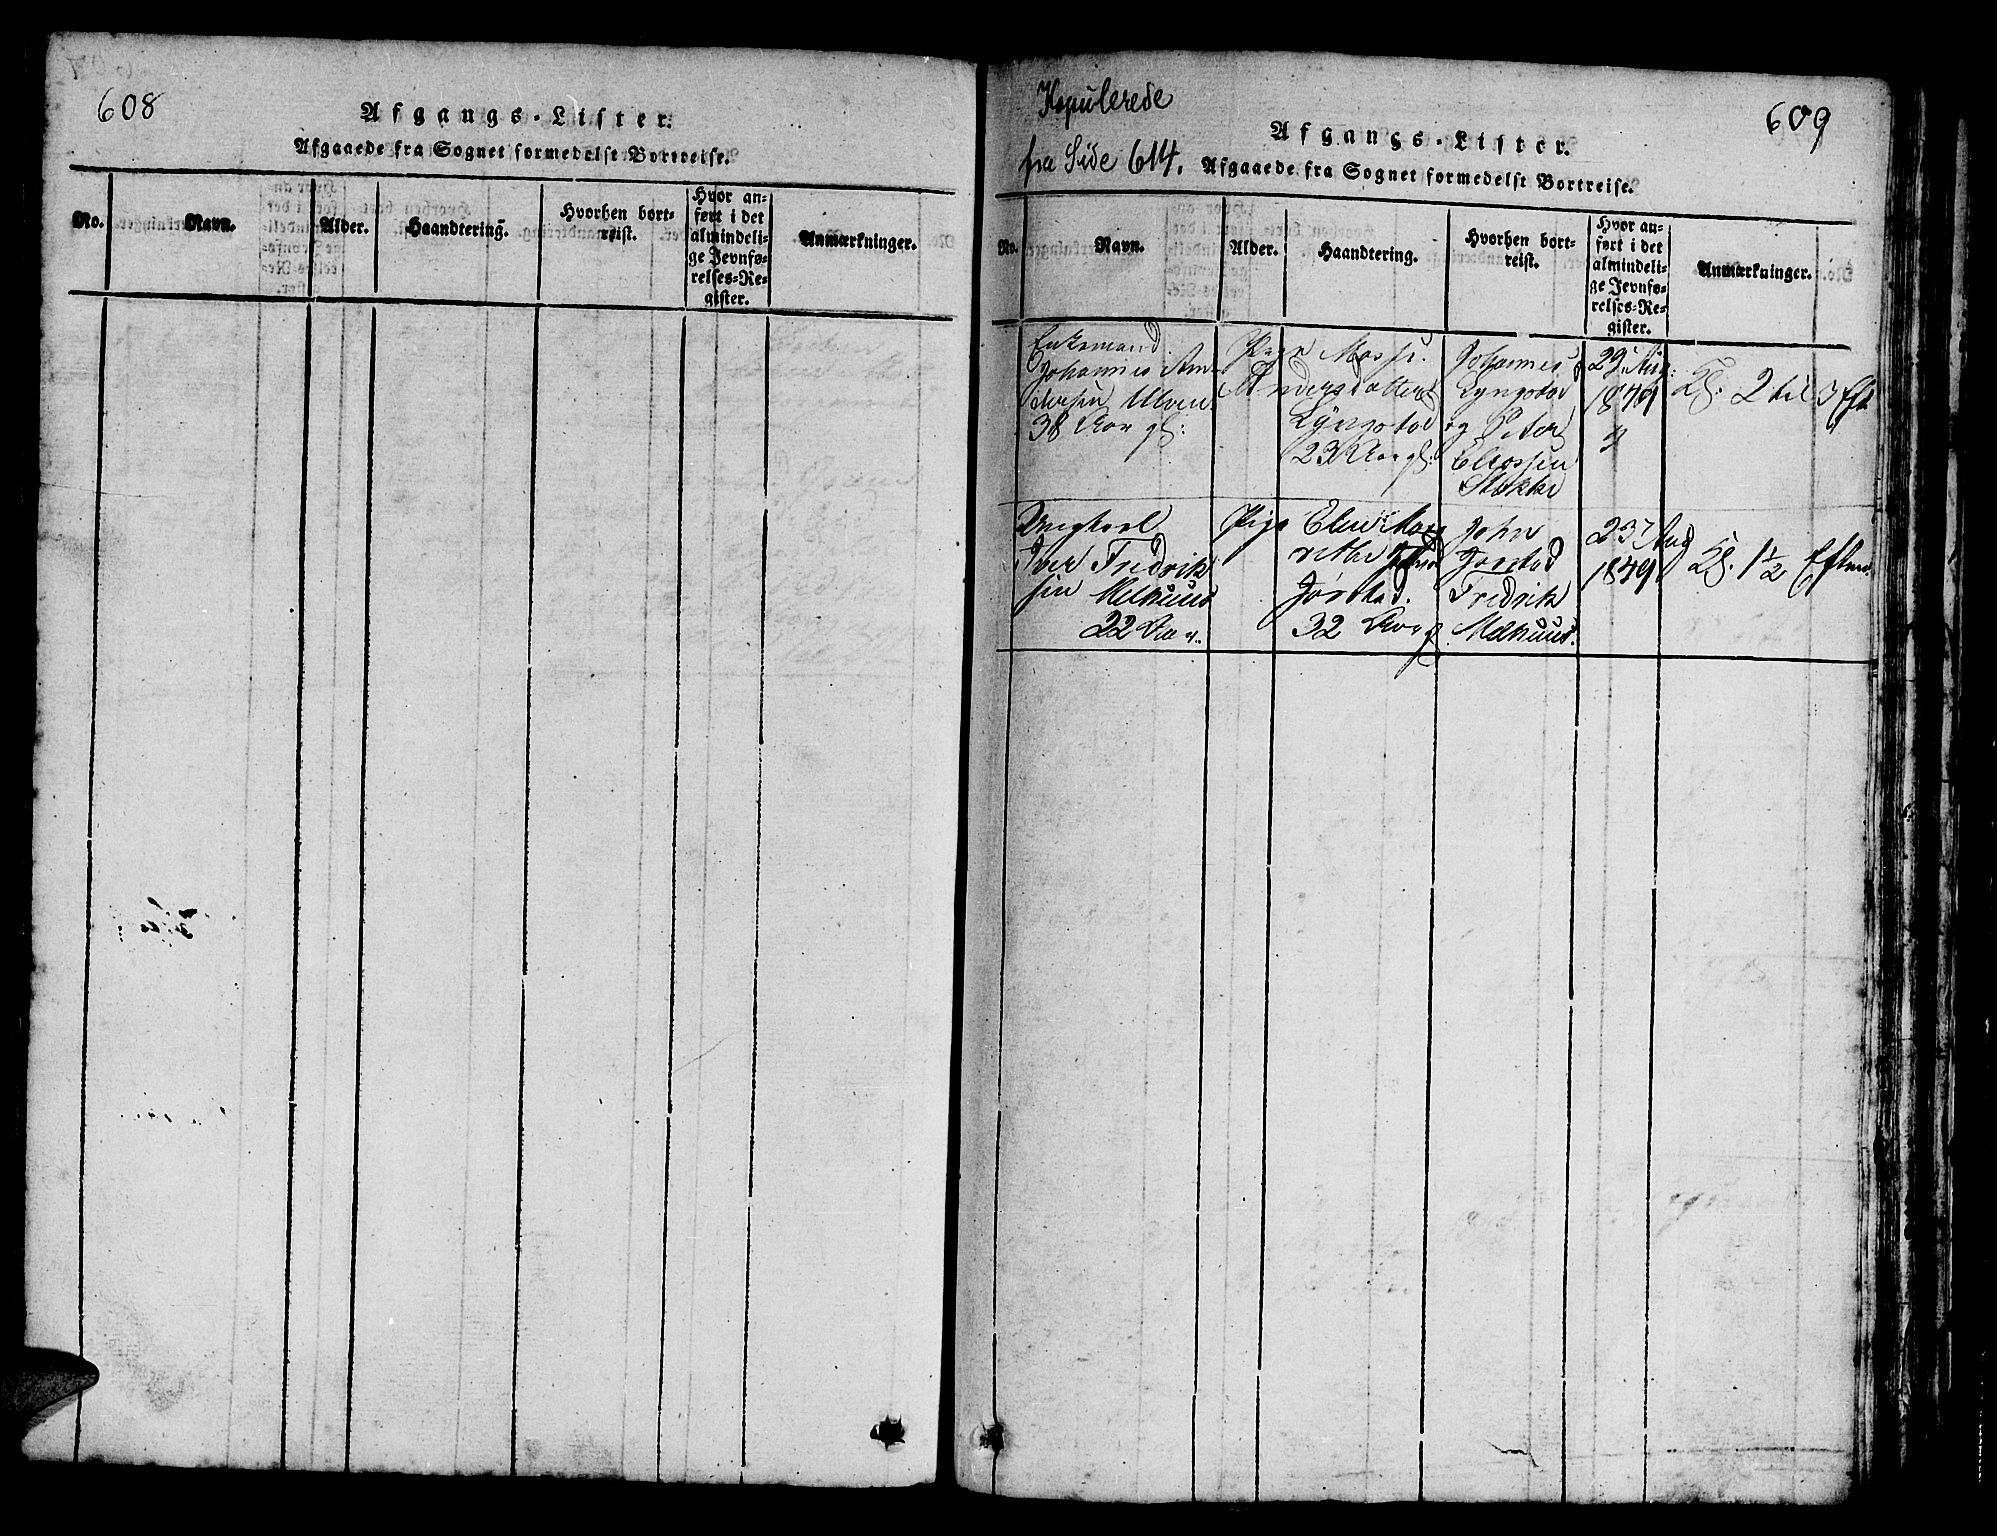 608
Afgangs-Lister.
Afgaaede fra Sognet formedelst Bortreise.
No. Navn. Alder. Haandtering. Hvorhen bort-
reist. Hvor an-
ført i det
almindeli-
ge Jevnfø-
relses-Re-
gister. Anmærkninger.
Kopulerede
fra Side 614.
609
Afgangs-Lister.
Afgaaede fra Sognet formedelst Bortreise.
No. Navn. Alder. Haandtering. Hvorhen bort-
reist. Hvor an-
ført i det
almindeli-
ge Jevnfø-
relses-Re-
gister. Anmærkninger.
Enkemand
Johannes An-
dersen Ulven
38 Aar gl:
Andersdatter
Lyngstad
23 Aar gl:
Johannes
Lyngstad
og Peter
Stokke
29 Aug:
1849
Kl. 2 til 3 Eft
Ungkarl
Iver Fredrik
sen Melhuus
22 Aar
Pige Elen Mar
rethe
Jørstad.
32 Aar g
John
Jørstad
Fredrik
Melhuus.
23 Aug
1849
Kl. 1½ Efterm.